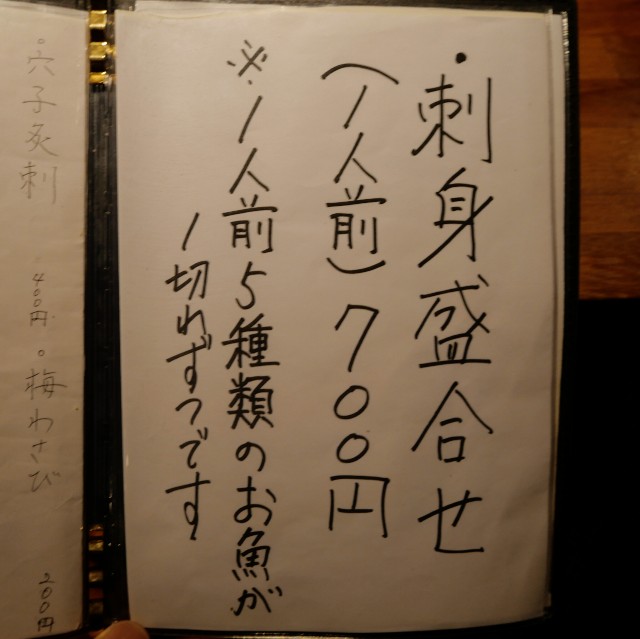 ・刺身盛合せ
(1人前)700円
※1人前5種類のお魚が
1切れずつです
・穴子炙刺 400円
・梅わさび 200円